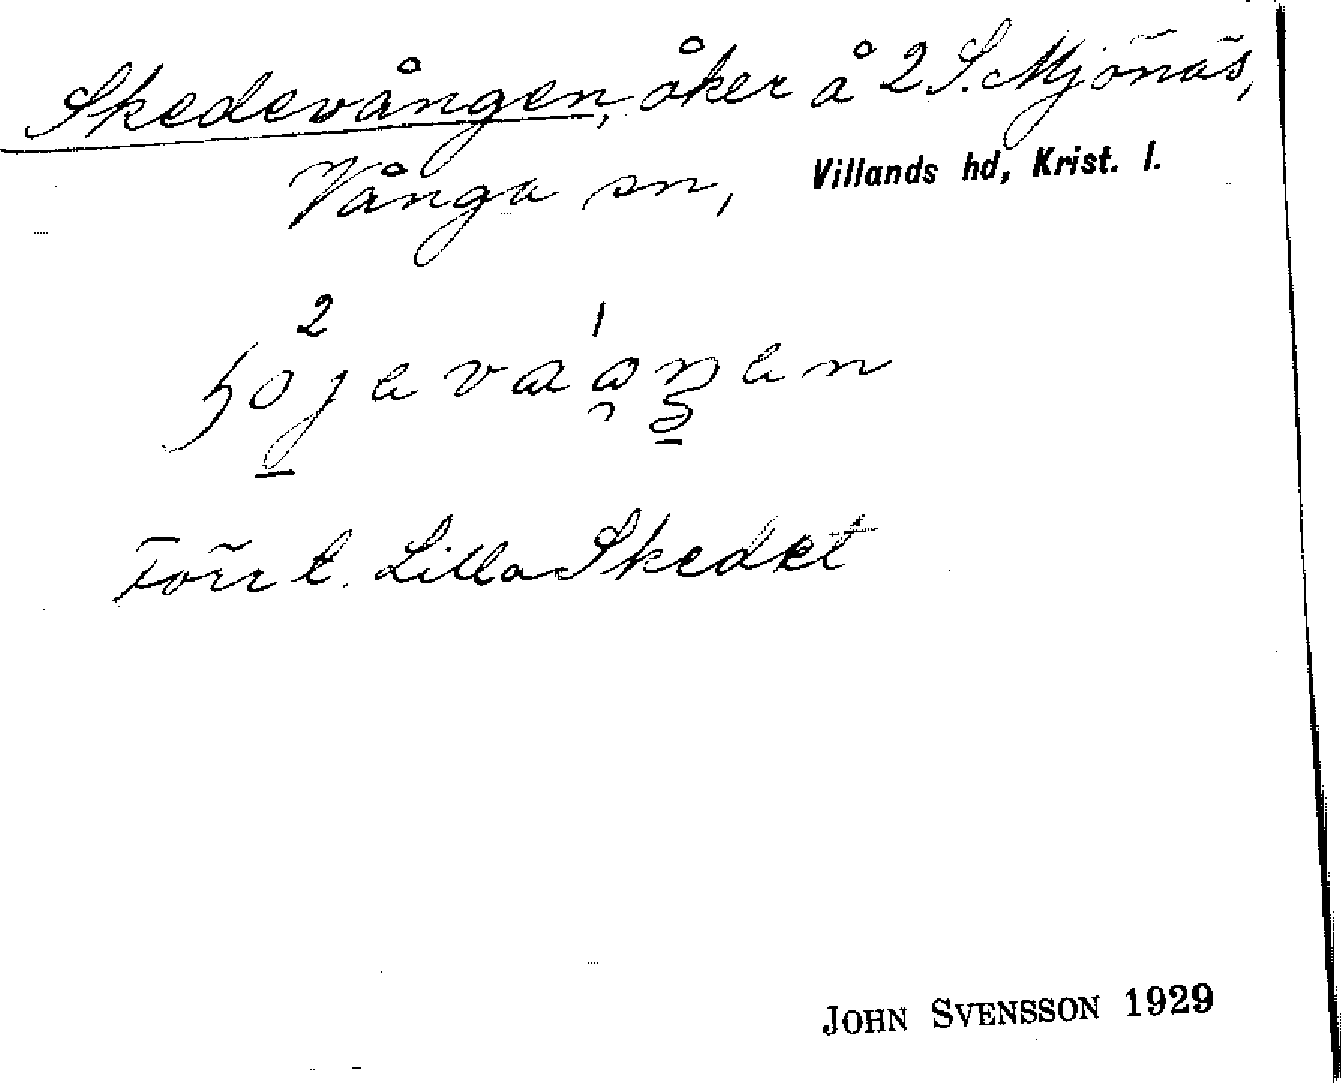 Skedevången, åker å 2 S. Mjönäs,
Vånga sn, Villands hd, Krist. l.
Förr t. Lilla Skedet
JOHN SVENSSON 1929